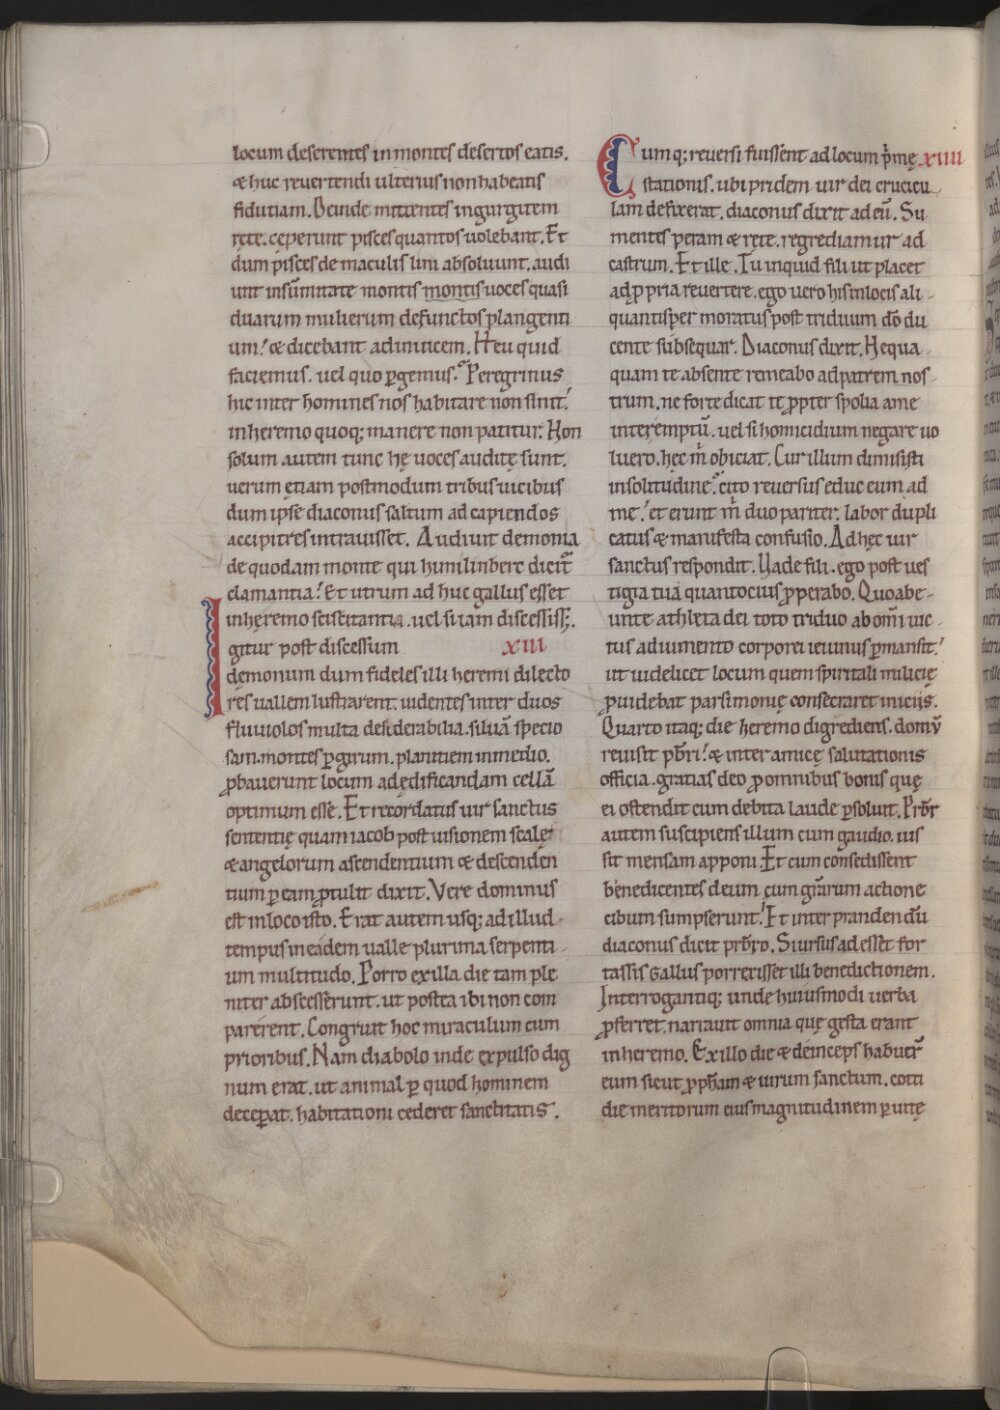 locum deserentes in montes desertos eatis.
& huc reuertendi ulterius non habeatis
fidutiam. Deinde mittentes in gurgitem
rete. ceperunt pisces quantos uolebant. Et
dum pisces de maculis lini absoluunt. audi
unt in sūmitate montis montis uoces quasi
duarum mulierum defunctos plangenti
um! & dicebant adinuicem. Heu quid
faciemus. uel quo ꝑgemus? Peregrinus
hic inter homines nos habitare non sinit.
in heremo quoq; manere non patitur. Non
solum autem tunc hę uoces auditę sunt.
uerum ętiam postmodum tribus uicibus
dum ipse diaconus saltum ad capiendos
accipitres intrauisset. Audiuit demonia
de quodam monte qui humilinberc dicit̃
clamantia! Et utrum ad huc gallus esset
in heremo sciscitantia. uel si iam discessiss&;.
Igitur post discessum XIII
dęmonum dum fideles illi heremi dilecto
res uallem lustrarent. uidentes inter duos
fluuiolos multa desiderabilia. siluā specio
sam. montes ꝑ girum. planitiem in medio.
ꝓbauerunt locum ad ędificandam cellā
optimum esse. Et recordatus uir sanctus
sententię quam iacob post uisionem scalę
& angelorum ascendentium & descenden
tium ꝑ eam ꝓtulit dixit. Vere dominus
est in loco isto. Erat autem usq; ad illud
tempus in eadem ualle plurima serpenti
um multitudo. Porro ex illa die tam ple
niter abscesserunt. ut postea ibi non com
parerent. Congruit hoc miraculum cum
prioribus. Nam diabolo inde expulso dig
num erat. ut animal ꝑ quod hominem
deceꝑat. habitationi cederet sanctitatis.
Cumq; reuersi fuissent ad locum p̃mę XIIII
stationis. ubi pridem uir dei crucicu
lam defixerat. diaconus dixit ad eū. Su
mentes peram & rete. regrediamur ad
castrum. Et ille. Tu inquid fili ut placet
ad ꝓpria reuertere. ego uero his in locis ali
quantisper moratus post triduum dō du
cente subsequar. Diaconus dixit. Nequa
quam te absente remeabo ad patrem nos
trum. ne forte dicat te ꝓpter spolia a me
interemptū. uel si homicidium negare uo
luero. hęc m̄ obiciat. Cur illum dimisisti
in solitudine? cito reuersus educ eum ad
me! et erunt m̄ duo pariter. labor dupli
catus & manifesta confusio. Ad hęc uir
sanctus respondit. Uade fili. ego post ues
tigia tua quantocius ꝓperabo. Quo abe
unte athleta dei toto triduo ab om̄i uic
tus adiumento corporei ieiunus ꝑmansit!
ut uidelicet locum quem spiritali milicię
ꝓuidebat parsimonię consecraret iniciis.
Quarto itaq; die heremo digrediens. domū
reuisit pb̄ri! & inter amicę salutationis
officia. gratias deo ꝓ omnibus bonis quę
ei ostendit cum debita laude ꝑsoluit. Prb̄r
autem suscipiens illum cum gaudio. ius
sit mensam apponi. Et cum consedissent
benedicentes deum. cum gr̄arum actione
cibum sumpserunt! Et inter prandendū
diaconus dicit prb̄ro. Si ursus adesset for
tassis Gallus porrexisset illi benedictionem.
Interrogantiq; unde huiusmodi uerba
ꝓferret. narrauit omnia quę gesta erant
in heremo. Ex illo die & deinceps habuer̄
eum sicut ꝓph̄am & uirum sanctum. cotti
die meritorum eius magnitudinem ꝑ uitę